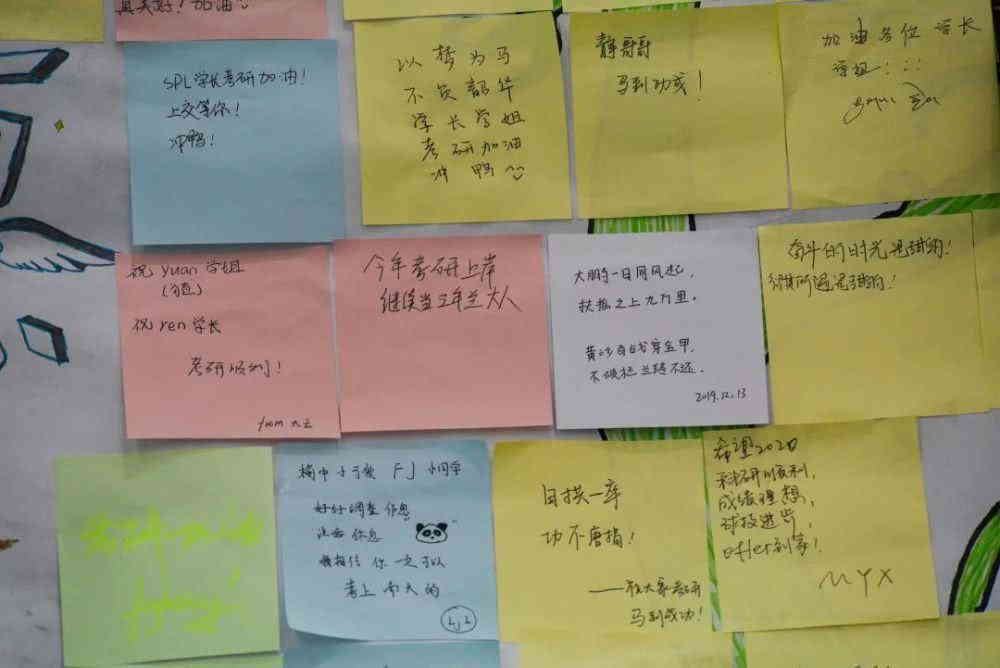 真美好！加油
SPL学长考研加油！
上交等你！
冲鸭！
以梦为马
不负韶华
学长学姐
考研加油
冲鸭
静哥哥
马到功成！
加油各位学长
学姐：：：
祝yuan学姐
祝ren学长
考研顺利！
from 大云
今年考研上岸
继续当三年兰大人
大鹏一日同风起，
扶摇之上九万里。
黄沙百战穿金甲，
不破楼兰终不还。
2019.12.13
奋斗的时光是甜的！
所遇是甜的！
FJ 小同学
好好调整作息
注意休息
我相信你一定可以
考上南大的
LJL
日拱一卒
功不唐捐！
——祝大家考研
马到成功！
希望2020
科研顺利，
成绩理想，
球技进步，
offer到家！
MYX